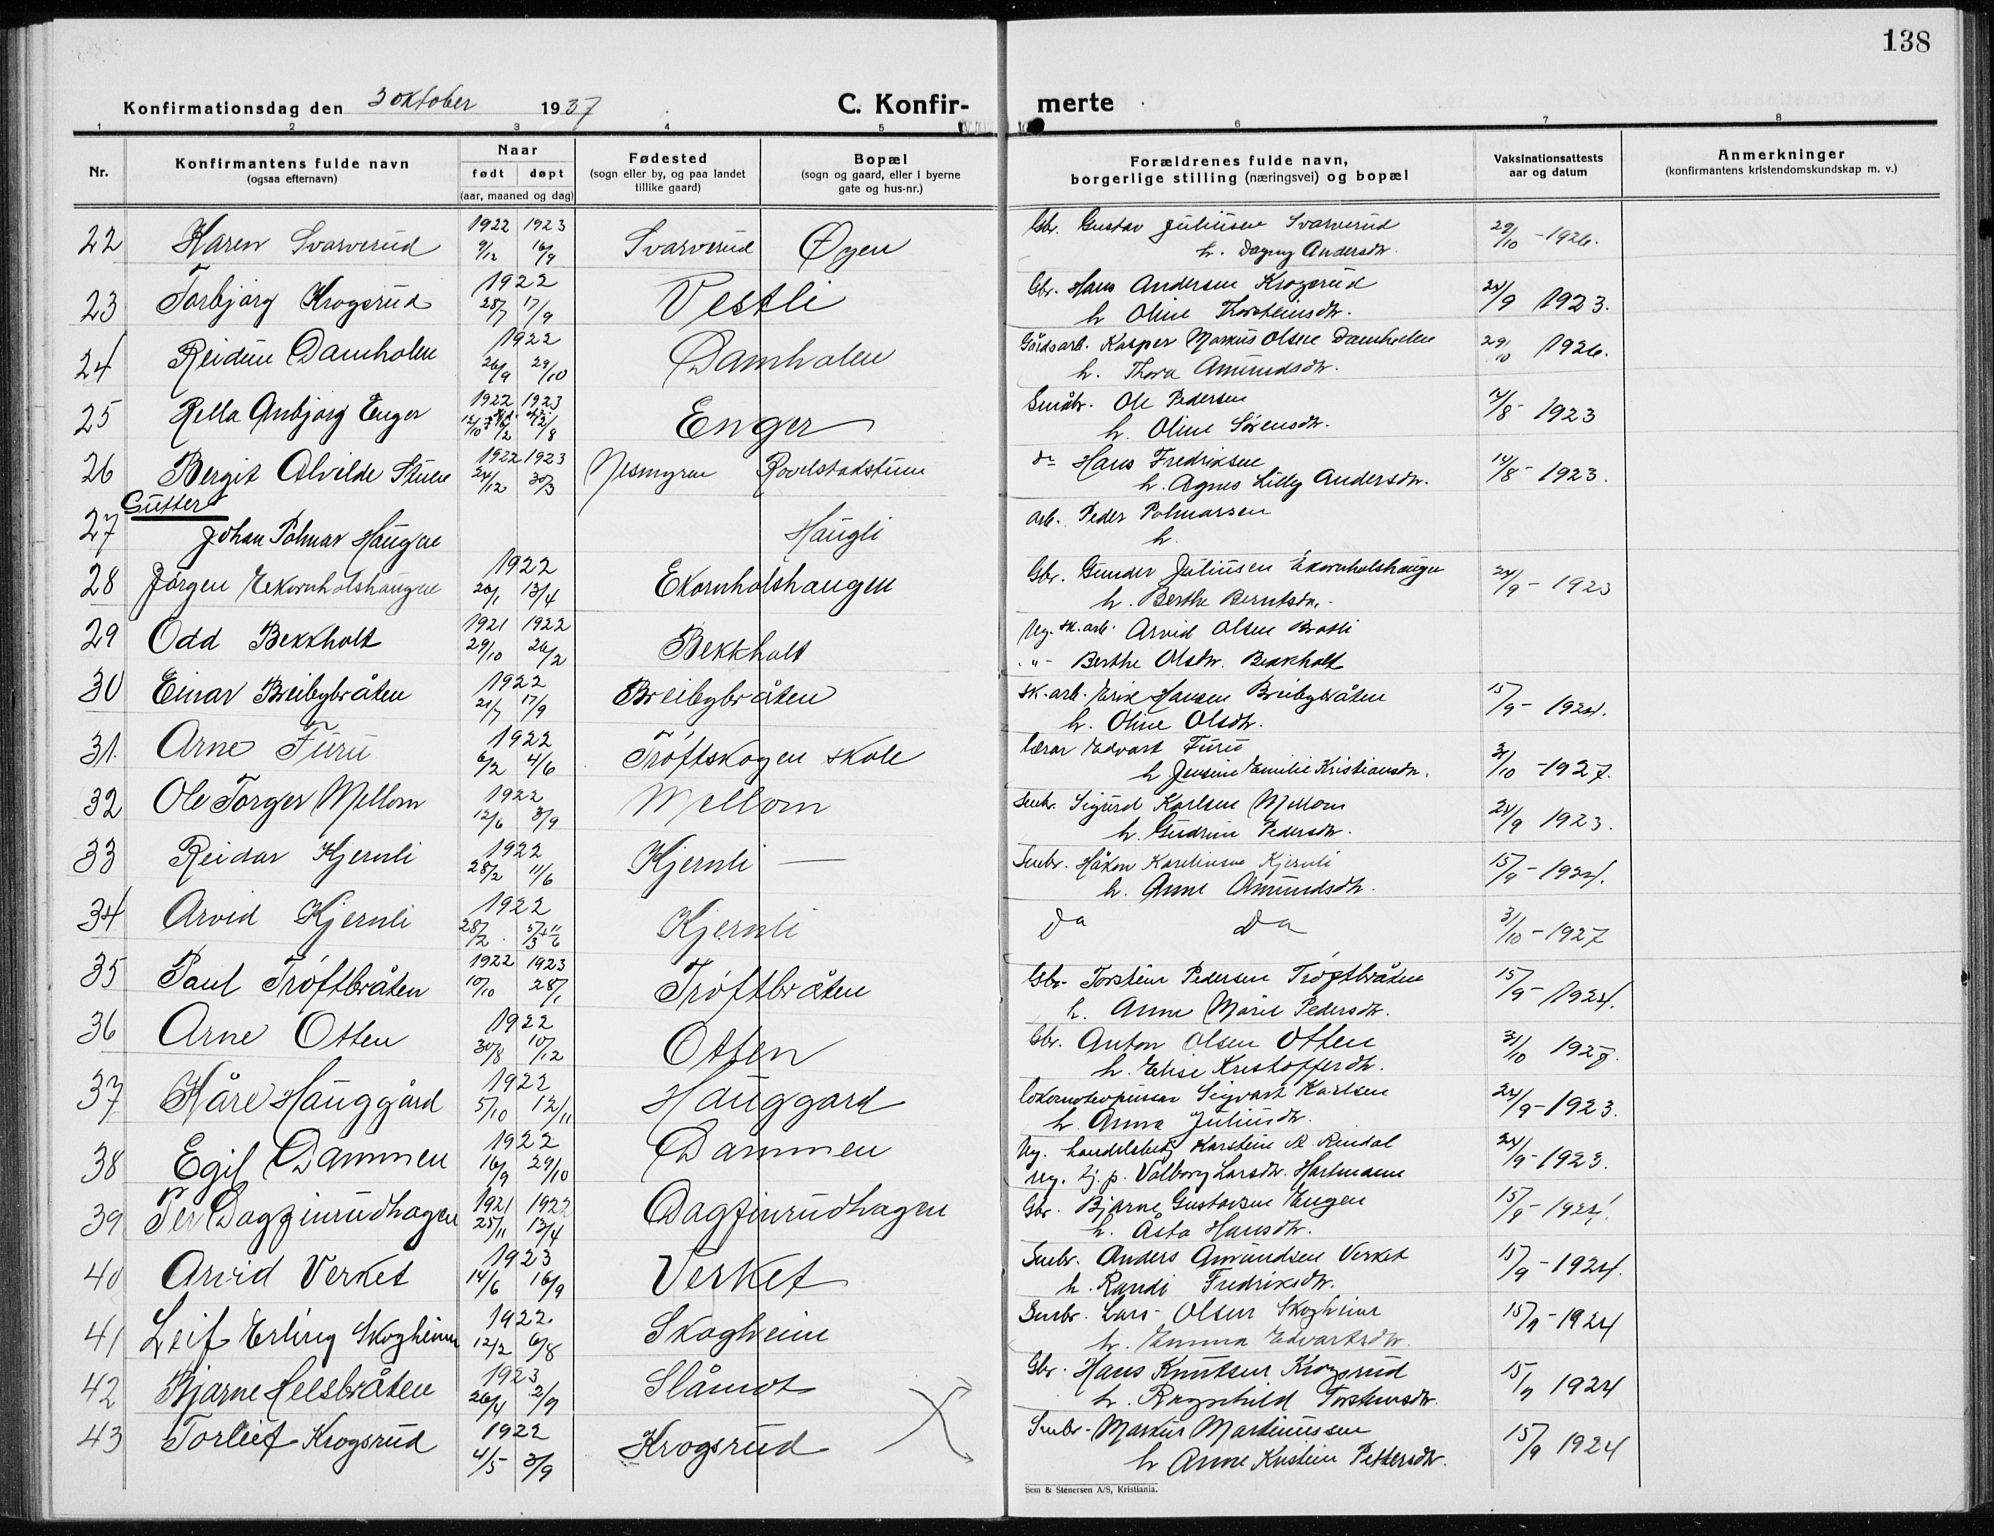 138
Konfirmationsdag den 3 oktober 1937
C. Konfir-merte
1 2 3 4 5 6 7 8
Nr.
Konfirmantens fulde navn
(ogsaa efternavn)
Naar
født døpt
(aar, maaned og dag)
Fødested
(sogn eller by, og paa landet
tillike gaard)
Bopæl
(sogn og gaard, eller i byerne
gate og hus-nr.)
Forældrenes fulde navn,
borgerlige stilling (næringsvei) og bopæl
Vaksinationsattests
aar og datum
Anmerkninger
(konfirmantens kristendomskundskap m. v.)
22 Karen Svarverud 1922 9/12 1923 16/9 Svarverud Øyen Gbr. Gustav Juliusen Svarverud 29/10 - 1926.
h. Dagny Andersdtr.
23 Torbjørg Krogsrud 1922 28/7 17/9 Vestli Gbr. Hans Andersen Krogsrud 24/9 1923.
h Oline Thorsteinsdtr.
24 Reidun Damholen 1922 26/9 29/10 Damholen Gårdsarb. Kasper Markus Olsen Damholen 29/10 1926.
h. Thora Amundsdtr.
25 Rella Anbjørg Enger 1922 12/10 1923 12/8 Enger Småbr. Ole Pedersen 14/8 - 1923
h. Oline Sørensdtr.
26 Bergit Alvilde Stuen 1922 24/12 1923 30/3 Nesmyren Rovelstadstuen do Hans Fredriksen 14/8 - 1923.
h. Agnes Lilly Andersdtr.
Gutter
27 Johan Polmar Haugen Haugli Arb. Peder Polmarsen
h.
28 Jørgen Ekornholshaugen 1922 20/1 13/4 Ekornholshaugen Gbr. Gunder Juliusen Ekornholshaugen 24/9 - 1923
h. Berthe Berntsdtr.
29 Odd Bekkholt 1921 29/10 1922 26/2 Bekkholt Ug. sk. arb. Arvid Olsen Bratli
- " - Berthe Olsdtr. Bekkholt
30 Einar Breibybråten 1922 21/7 17/9 Breibybråten sk. arb. Erik Hansen Breibybråten 15/9 - 1924.
h. Oline Olsdtr.
31. Arne Furu 1922 6/2 4/6 Trøftskogen skole Lærar Edvart Furu 31/10 - 1927.
h Jensine Emilie Kristiansdtr.
32 Ole Torger Mellom 1922 12/6 3/9 Mellom Smbr. Sigurd Karlsen Mellom 24/9 1923.
h. Gudrun Pedersdtr.
33 Reidar Kjernli 1922 28/2 11/6 Kjernli — Smbr. Håkon Karelinsen Kjernli 15/9 - 1924.
h. Anne Amundsdtr.
34 Arvid Kjernli 1922 28/2 Kjernli Do Do 31/10 - 1927
35 Paul Trøftbråten 1922 10/10 1923 28/1 Trøftbråten Gbr. Torstein Pedersen Trøftbråten 15/9 - 1924.
h. Anne Marie Pedersdtr.
36 Arne Otten 1922 30/8 10/12 Otten Gbr. Anton Olsen Otten 31/10 1927.
h. Elise Kristofferdtr.
37 Kåre Hauggård 1922 5/10 12/11 Hauggard Lokomotivpusser Sigvart Karlsen 24/9 - 1923.
h. Anna Juliusdtr.
38 Egil Dammen 1922 16/9 29/10 Dammen Ug. handelsbetj Karstein M. Rindal 24/9 - 1923.
Ug. tj. p. Valborg Larsdtr. Hartmann
39 Per Dagfinrudhagen 1921 25/11 1922 13/4 Dagfinrudhagen Gbr. Bjarne Gustavsen Engen 15/9 - 1924.
h. Åsta Hansdtr.
40 Arvid Verket 1923 14/6 16/9 Verket Smbr. Anders Amundsen Verket 15/9 - 1924.
h. Randi Fredriksdtr.
41 Leif Erling Skogheim 1922. 12/2 6/8 Skogheim Smbr. Lars Olsen Skogheim 15/9 - 1924
h. Emma Edvartsdtr.
42 Bjarne Helsbråten 1923 26/4 2/9 Slåmot Gbr. Hans Knutsen Krogsrud 15/9 1924
h. Ragnhild Torsteinsdtr.
43 Torleif Krogsrud 1922 4/5 3/9 Krogsrud Smbr. Markus Martinussen 15/9 1924
h Anne Kristine Pettersdtr.
Sem & Stenersen A/S, Kristiania.